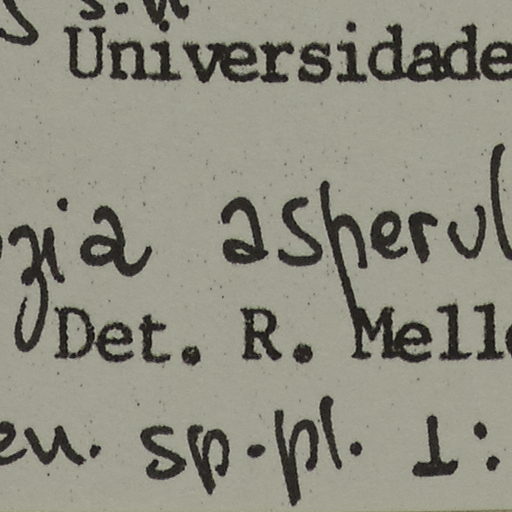 s.n
Universidade
zia asperul
Det. R. Mell
en. sp.pl. 1: